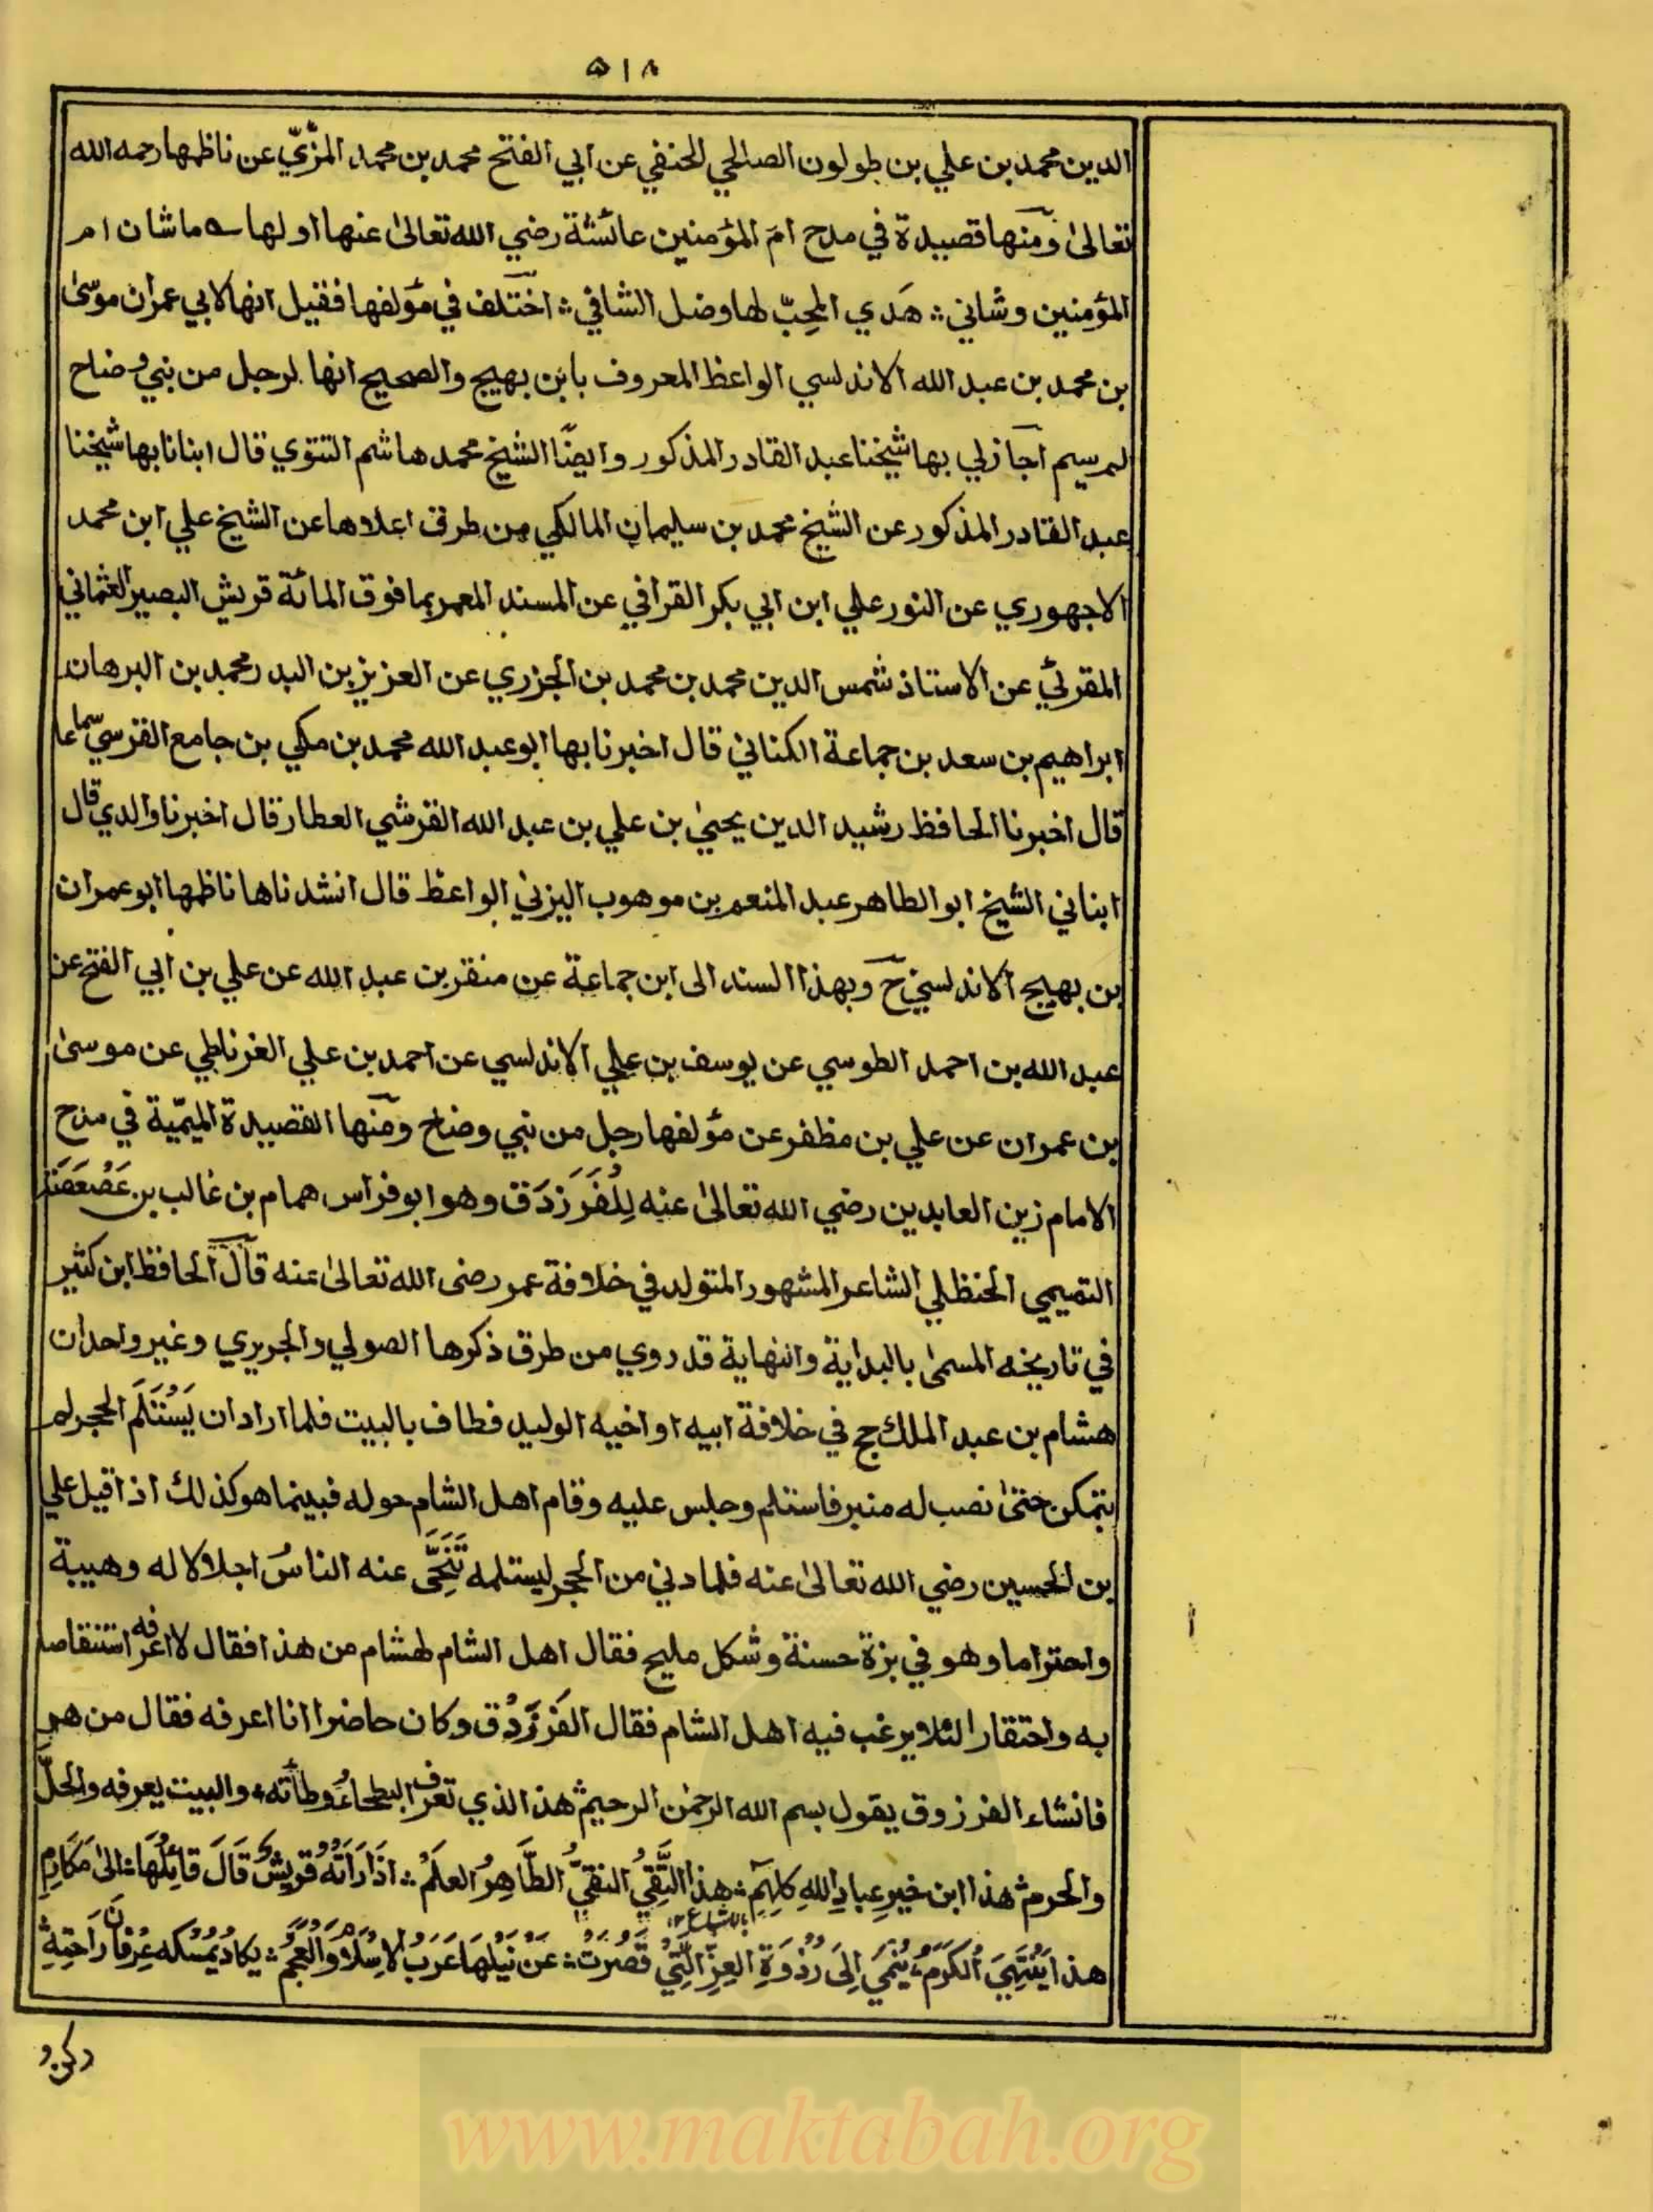 ٥١٨
الدين محمد بن علي بن طولون الصالحي الحنفي عن ابي الفتح محمد بن محمد المزّيّ عن ناظمها رحمه الله
تعالىٰ ومنها قصيدة في مدح امّ المؤمنين عائشة رضي الله تعالىٰ عنها اولها ما شان ام
المؤمنين وشاني ؞ هَدي المحِبّ لها وضل الشاني ؞ اختلف في مؤلفها فقيل انها لابي عمران موسىٰ
بن محمد بن عبد الله الاندلسي الواعظ المعروف بابن بهيج والصحيح انها لرجل من بني وضاح
لم يسم اجاز لي بها شيخنا عبد القادر المذكور وايضًا الشيخ محمد هاشم التتوي قال انبانا بها شيخنا
عبد القادر المذكور عن الشيخ محمد بن سليمان المالكي من طرق اعلاها عن الشيخ علي ابن محمد
الاجهوري عن النور علي ابن ابي بكر القرافي عن المسند المعمر بما فوق المائة قريش البصير العثماني
المقرئي عن الاستاذ شمس الدين محمد بن محمد بن الجزري عن العزيز بن البدر محمد بن البرهان
ابراهيم بن سعد بن جماعة الكناني قال اخبرنا بها ابو عبد الله محمد بن مكي بن جامع القرسيّ سماعا
قال اخبرنا الحافظ رشيد الدين يحيىٰ بن علي بن عبد الله القرشي العطار قال اخبرنا والدي قال
انباني الشيخ ابو الطاهر عبد المنعم بن موهوب اليزني الواعظ قال انشدناها ناظمها ابو عمران
بن بهيج الاندلسي ح وبهذا السند الى ابن جماعة عن منقر بن عبد الله عن علي بن ابي الفتح عن
عبد الله بن احمد الطوسي عن يوسف بن علي الاندلسي عن احمد بن علي الغرناطي عن موسىٰ
بن عمران عن علي بن مظفر عن مؤلفها رجل من بني وضاح ومنها القصيدة الميمّية في مدح
الامام زين العابدين رضي الله تعالىٰ عنه لِلْفَرَزدَق وهو ابو فراس همام بن غالب بن عَصْعَصَة
التميمي الحنظلي الشاعر المشهور المتولد في خلافة عمر رضى الله تعالىٰ عنه قال الحافظ ابن كثير
في تاريخه المسمىٰ بالبداية والنهاية قد روي من طرق ذكرها الصولي والجريري وغير واحد ان
هشام بن عبد الملك حج في خلافة ابيه او اخيه الوليد فطاف بالبيت فلما اراد ان يَسْتَلَمَ الحجر لم
يتمكن حتىٰ نصب له منبر فاستلم وجلس عليه وقام اهل الشام حوله فبينما هو كذلك اذ اقبل علي
بن الحسين رضي الله تعالىٰ عنه فلما دني من الحجر ليستلمه تَنَحّىٰ عنه الناسُ اجلالا له وهيبة
واحتراما وهو في بزة حسنة وشكل مليح فقال اهل الشام لهشام من هذا فقال لا اعرفه استنقاصا
به واحتقارا لئلا يرغب فيه اهل الشام فقال الفَرَزدْق وكان حاضرا انا اعرفه فقال من هو
فانشاء الفرزوق يقول بسم الله الرحمٰن الرحيم ؞ هذا الذي تعرف البطحاءُ وطأته ؞ والبيت يعرفه والحلّ
والحرم ؞ هذا ابن خيرِ عبادِ اللهِ كلهمِ ؞ هذا التَّقِيُ النقيُّ الطَّاهِرُ العلَمُ ؞ اذَا رَأتْهُ قريشٌ قَالَ قَائِلُهَا ؞ الىٰ مَكَارِمِ
بالاشباع ١٢
هذا يَنْتَهِيَ الكَرَمُ ؞ يُنْمَي اِلَى رُذوَةِ العِزِّ الَّتِيْ قَصُرَتْ ؞ عَنْ نَيْلِهَا عَرَبُ الاسْلَامِ وَالْعَجَمُ ؞ يكادُ يُمْسكه عِرْفَانَ رَاحَتِهِ
ركن و
www.maktabah.org